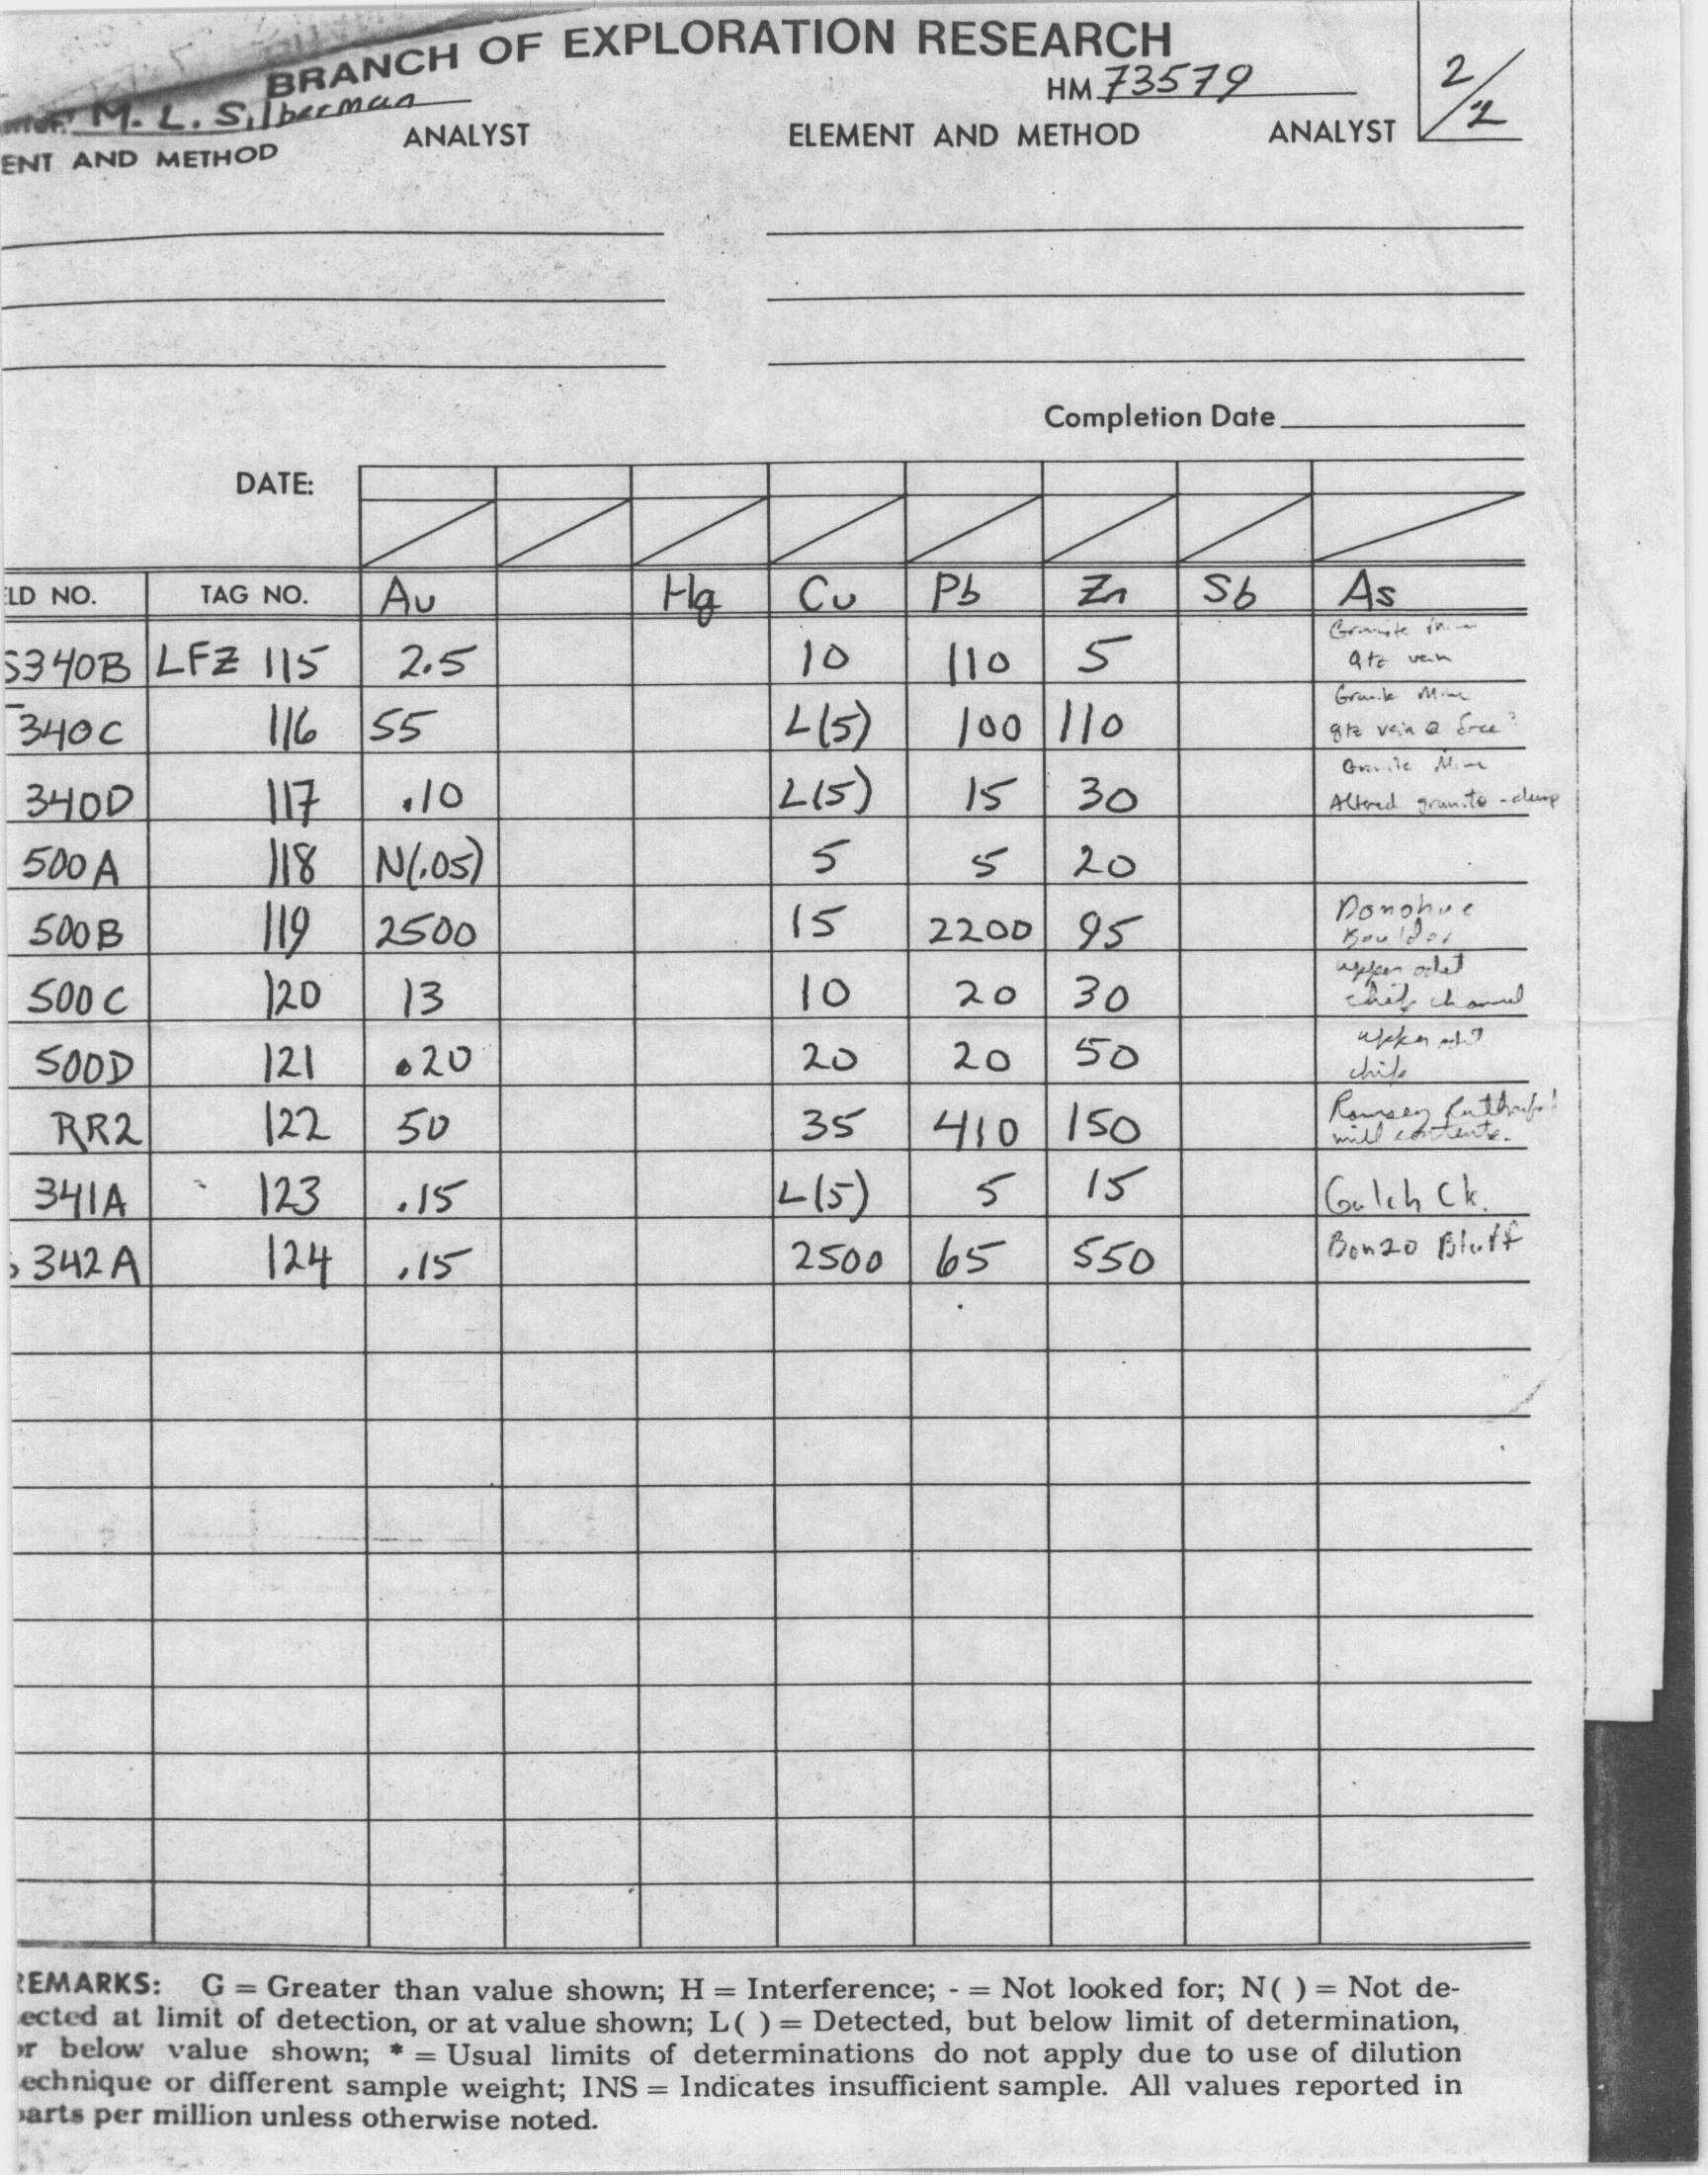 BRANCH OF EXPLORATION RESEARCH
M. L. Silberman
HM 73579
2/2
ENT AND METHOD ANALYST ELEMENT AND METHOD ANALYST
Completion Date
DATE:
LD NO. TAG NO. Au Hg Cu Pb Zn Sb As
S340B LFZ 115 2.5 10 110 5 Granite Mine qtz vein
340C 116 55 L(5) 100 110 Granite Mine qtz vein @ face?
340D 117 .10 L(5) 15 30 Granite Mine Altered granite - dump
500A 118 N(.05) 5 5 20
500B 119 2500 15 2200 95 Donohue Boulder
500C 120 13 10 20 30 upper adit chip channel
500D 121 .20 20 20 50 upper adit chip
RR2 122 50 35 410 150 Ramsey Rutherford mill contents.
341A 123 .15 L(5) 5 15 Gulch Ck.
342A 124 .15 2500 65 550 Bonzo Bluff
REMARKS: G = Greater than value shown; H = Interference; - = Not looked for; N( ) = Not de-
ected at limit of detection, or at value shown; L( ) = Detected, but below limit of determination,
or below value shown; * = Usual limits of determinations do not apply due to use of dilution
echnique or different sample weight; INS = Indicates insufficient sample. All values reported in
parts per million unless otherwise noted.